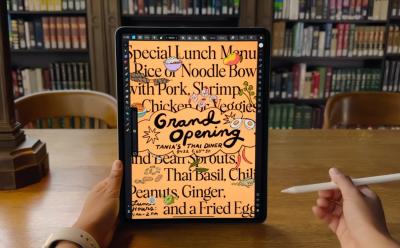 Special Lunch Menu
Rice or Noodle Bow
with Pork, Shrimp,
Chicken or Veggies
Grand
Opening
TANIA'S THAI DINER
and Bean Sprouts,
Thai Basil, Chili
Peanuts, Ginger,
and a Fried Egg